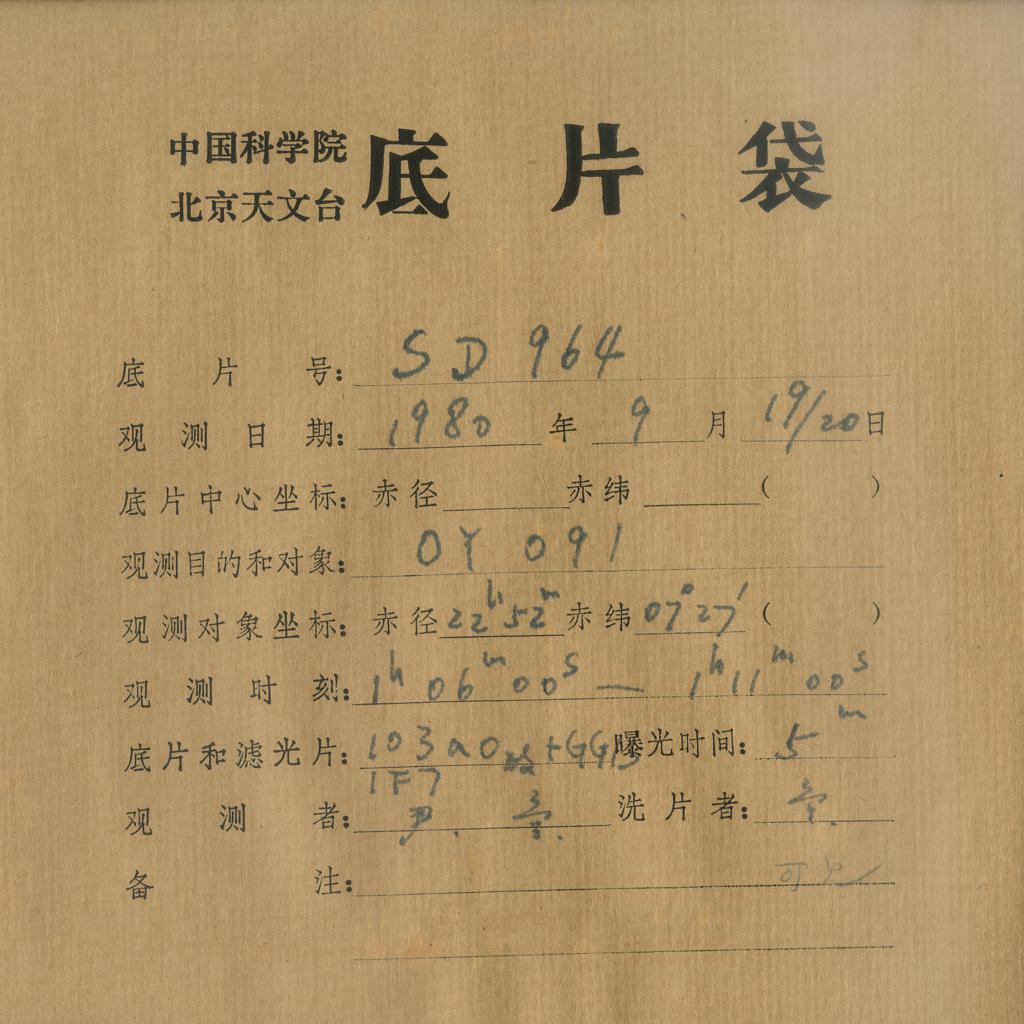 中国科学院
北京天文台
底片袋
底片号： SD 964
观测日期： 1980 年 9 月 19/20 日
底片中心坐标： 赤径 赤纬 （ ）
观测目的和对象： OY 091
观测对象坐标： 赤径 22h52m 赤纬 07°27′ （ ）
观测时刻： 1h 06m 00s — 1h 11m 00s
底片和滤光片： 103aO +GG13 曝光时间： 5m
1F7
观测者： 尹. 洗片者：
备注：